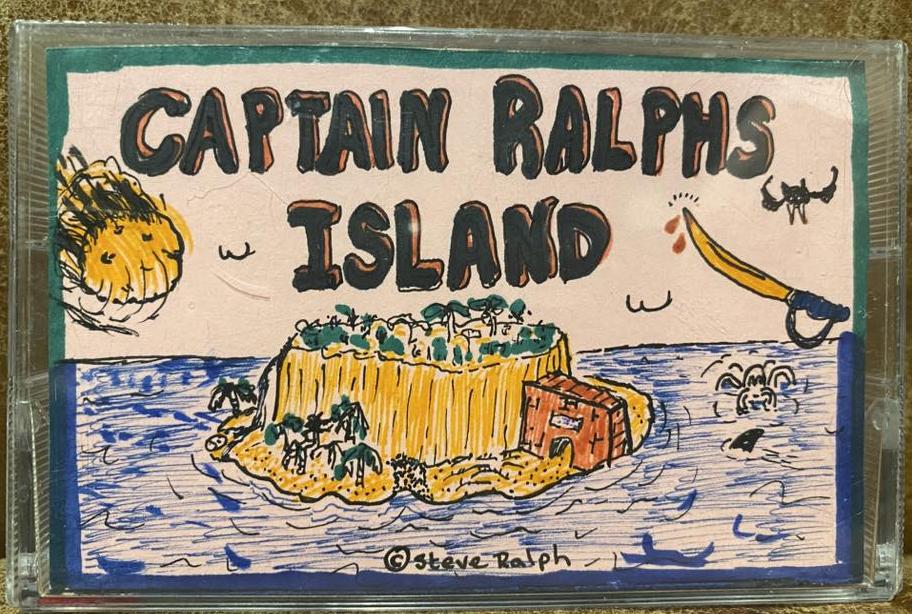 CAPTAIN RALPHS
ISLAND
© Steve Ralph